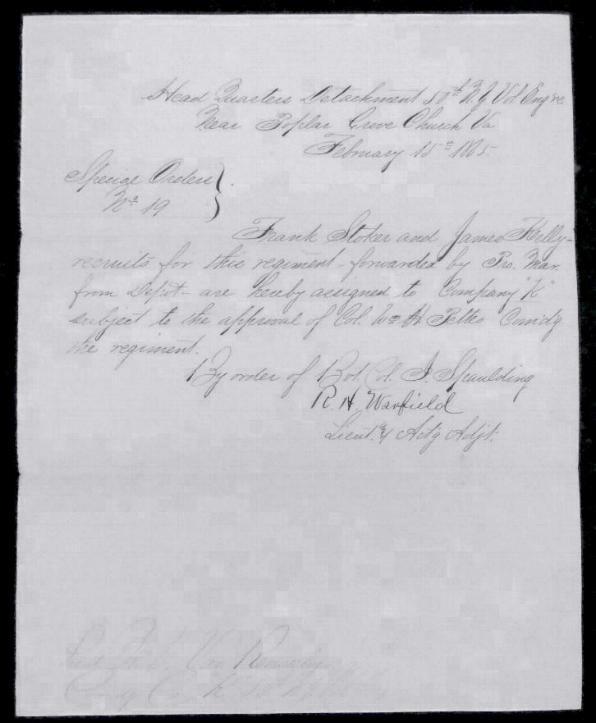 Head Quarters Detachment 50th N.Y Vol Engrs
Near Poplar Grove Church Va
February 15th 1865.
Special Orders
No 19
Frank Stoker and James Kelly
recruits for this regiment forwarded by Pro. Mar.
from Depot are hereby assigned to Company "K"
subject to the approval of Col. Wm H Pettes Comdg
the regiment.
By order of Bvt. Col. I. Spaulding
R. H. Warfield
Lieut. & Actg Adjt.